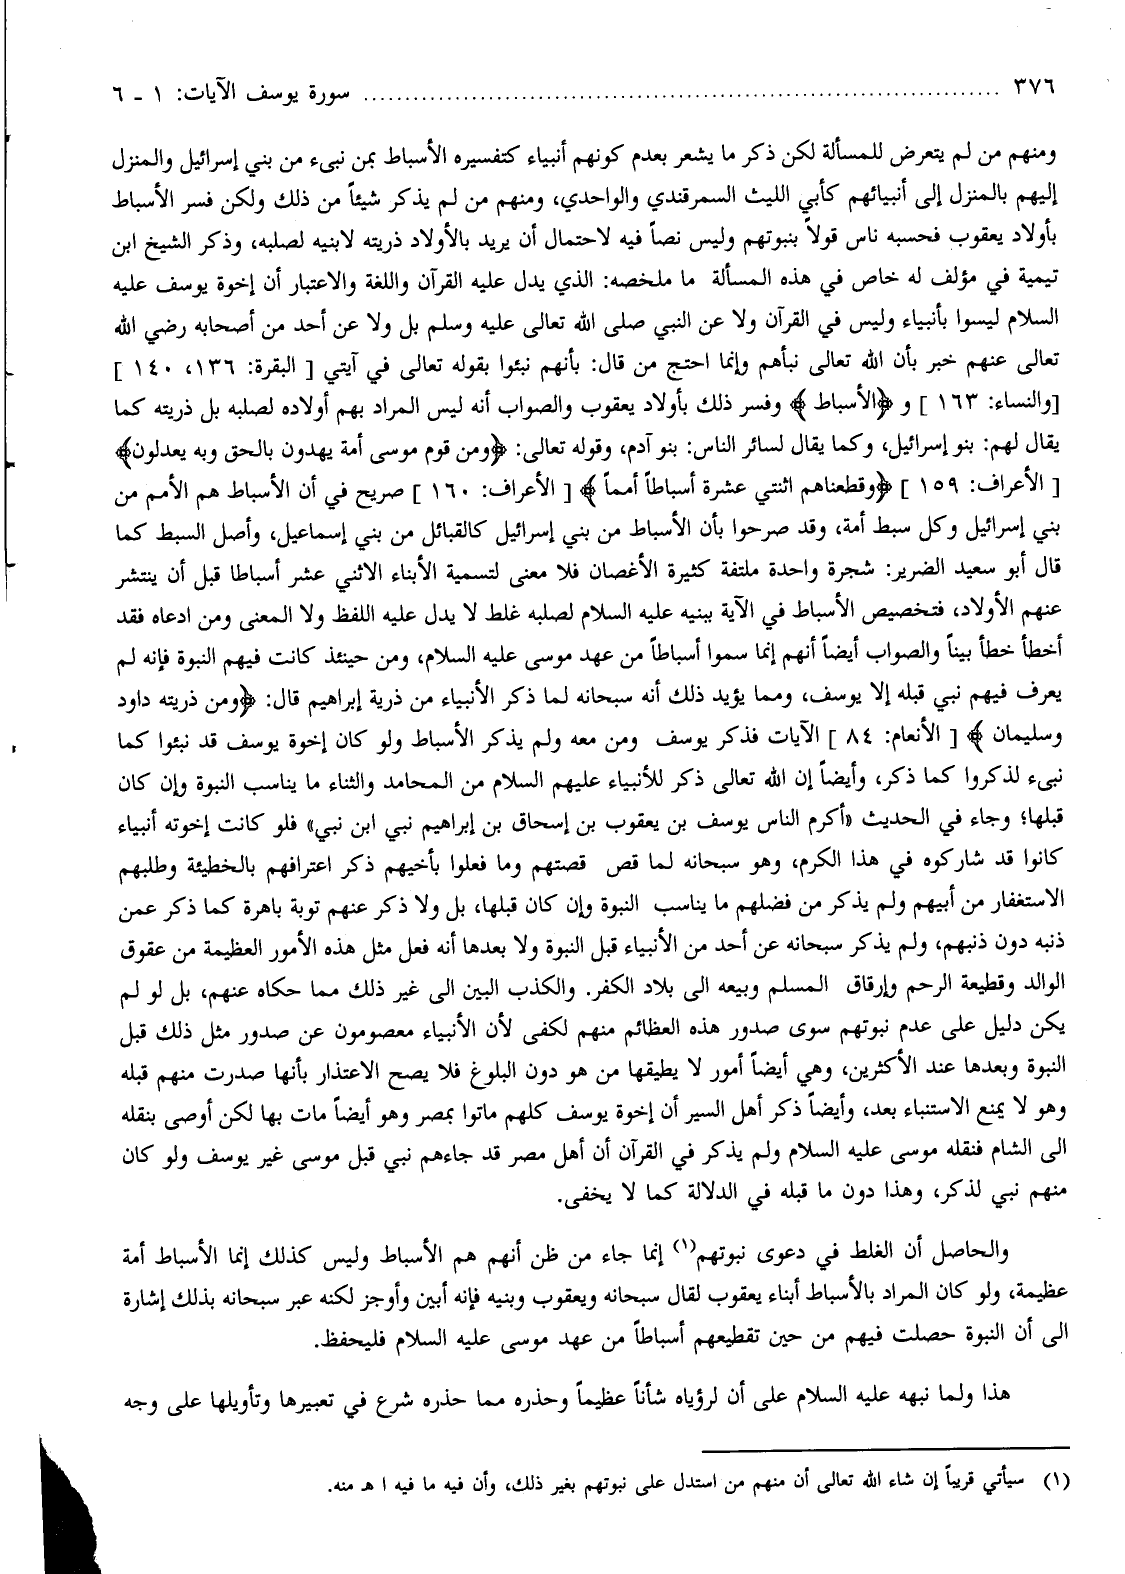 ٣٧٦ ........................................ سورة يوسف الآيات: ١ ـ ٦
ومنهم من لم يتعرض للمسألة لكن ذكر ما يشعر بعدم كونهم أنبياء كتفسيره الأسباط بمن نبىء من بني إسرائيل والمنزل
إليهم بالمنزل إلى أنبيائهم كأبي الليث السمرقندي والواحدي، ومنهم من لم يذكر شيئاً من ذلك ولكن فسر الأسباط
بأولاد يعقوب فحسبه ناس قولاً بنبوتهم وليس نصاً فيه لاحتمال أن يريد بالأولاد ذريته لابنيه لصلبه، وذكر الشيخ ابن
تيمية في مؤلف له خاص في هذه المسألة ما ملخصه: الذي يدل عليه القرآن واللغة والاعتبار أن إخوة يوسف عليه
السلام ليسوا بأنبياء وليس في القرآن ولا عن النبي صلى الله تعالى عليه وسلم بل ولا عن أحد من أصحابه رضي الله
تعالى عنهم خبر بأن الله تعالى نبأهم وإنما احتج من قال: بأنهم نبئوا بقوله تعالى في آيتي [ البقرة: ١٣٦، ١٤٠ ]
[والنساء: ١٦٣ ] و ﴿الأسباط ﴾ وفسر ذلك بأولاد يعقوب والصواب أنه ليس المراد بهم أولاده لصلبه بل ذريته كما
يقال لهم: بنو إسرائيل، وكما يقال لسائر الناس: بنو آدم، وقوله تعالى: ﴿ومن قوم موسى أمة يهدون بالحق وبه يعدلون﴾
[ الأعراف: ١٥٩ ] ﴿وقطعناهم اثنتي عشرة أسباطاً أمماً ﴾ [ الأعراف: ١٦٠ ] صريح في أن الأسباط هم الأمم من
بني إسرائيل وكل سبط أمة، وقد صرحوا بأن الأسباط من بني إسرائيل كالقبائل من بني إسماعيل، وأصل السبط كما
قال أبو سعيد الضرير: شجرة واحدة ملتفة كثيرة الأغصان فلا معنى لتسمية الأبناء الاثني عشر أسباطا قبل أن ينتشر
عنهم الأولاد، فتخصيص الأسباط في الآية ببنيه عليه السلام لصلبه غلط لا يدل عليه اللفظ ولا المعنى ومن ادعاه فقد
أخطأ خطأ بيناً والصواب أيضاً أنهم إنما سموا أسباطاً من عهد موسى عليه السلام، ومن حينئذ كانت فيهم النبوة فإنه لم
يعرف فيهم نبي قبله إلا يوسف، ومما يؤيد ذلك أنه سبحانه لما ذكر الأنبياء من ذرية إبراهيم قال: ﴿ومن ذريته داود
وسليمان ﴾ [ الأنعام: ٨٤ ] الآيات فذكر يوسف ومن معه ولم يذكر الأسباط ولو كان إخوة يوسف قد نبئوا كما
نبىء لذكروا كما ذكر، وأيضاً إن الله تعالى ذكر للأنبياء عليهم السلام من المحامد والثناء ما يناسب النبوة وإن كان
قبلها؛ وجاء في الحديث «أكرم الناس يوسف بن يعقوب بن إسحاق بن إبراهيم نبي ابن نبي» فلو كانت إخوته أنبياء
كانوا قد شاركوه في هذا الكرم، وهو سبحانه لما قص قصتهم وما فعلوا بأخيهم ذكر اعترافهم بالخطيئة وطلبهم
الاستغفار من أبيهم ولم يذكر من فضلهم ما يناسب النبوة وإن كان قبلها، بل ولا ذكر عنهم توبة باهرة كما ذكر عمن
ذنبه دون ذنبهم، ولم يذكر سبحانه عن أحد من الأنبياء قبل النبوة ولا بعدها أنه فعل مثل هذه الأمور العظيمة من عقوق
الوالد وقطيعة الرحم وإرقاق المسلم وبيعه الى بلاد الكفر. والكذب البين الى غير ذلك مما حكاه عنهم، بل لو لم
يكن دليل على عدم نبوتهم سوى صدور هذه العظائم منهم لكفى لأن الأنبياء معصومون عن صدور مثل ذلك قبل
النبوة وبعدها عند الأكثرين، وهي أيضاً أمور لا يطيقها من هو دون البلوغ فلا يصح الاعتذار بأنها صدرت منهم قبله
وهو لا يمنع الاستنباء بعد، وأيضاً ذكر أهل السير أن إخوة يوسف كلهم ماتوا بمصر وهو أيضاً مات بها لكن أوصى بنقله
الى الشام فنقله موسى عليه السلام ولم يذكر في القرآن أن أهل مصر قد جاءهم نبي قبل موسى غير يوسف ولو كان
منهم نبي لذكر، وهذا دون ما قبله في الدلالة كما لا يخفى.
والحاصل أن الغلط في دعوى نبوتهم(١) إنما جاء من ظن أنهم هم الأسباط وليس كذلك إنما الأسباط أمة
عظيمة، ولو كان المراد بالأسباط أبناء يعقوب لقال سبحانه ويعقوب وبنيه فإنه أبين وأوجز لكنه عبر سبحانه بذلك إشارة
الى أن النبوة حصلت فيهم من حين تقطيعهم أسباطاً من عهد موسى عليه السلام فليحفظ.
هذا ولما نبهه عليه السلام على أن لرؤياه شأناً عظيماً وحذره مما حذره شرع في تعبيرها وتأويلها على وجه
(١) سيأتي قريباً إن شاء الله تعالى أن منهم من استدل على نبوتهم بغير ذلك، وأن فيه ما فيه ا هـ منه.